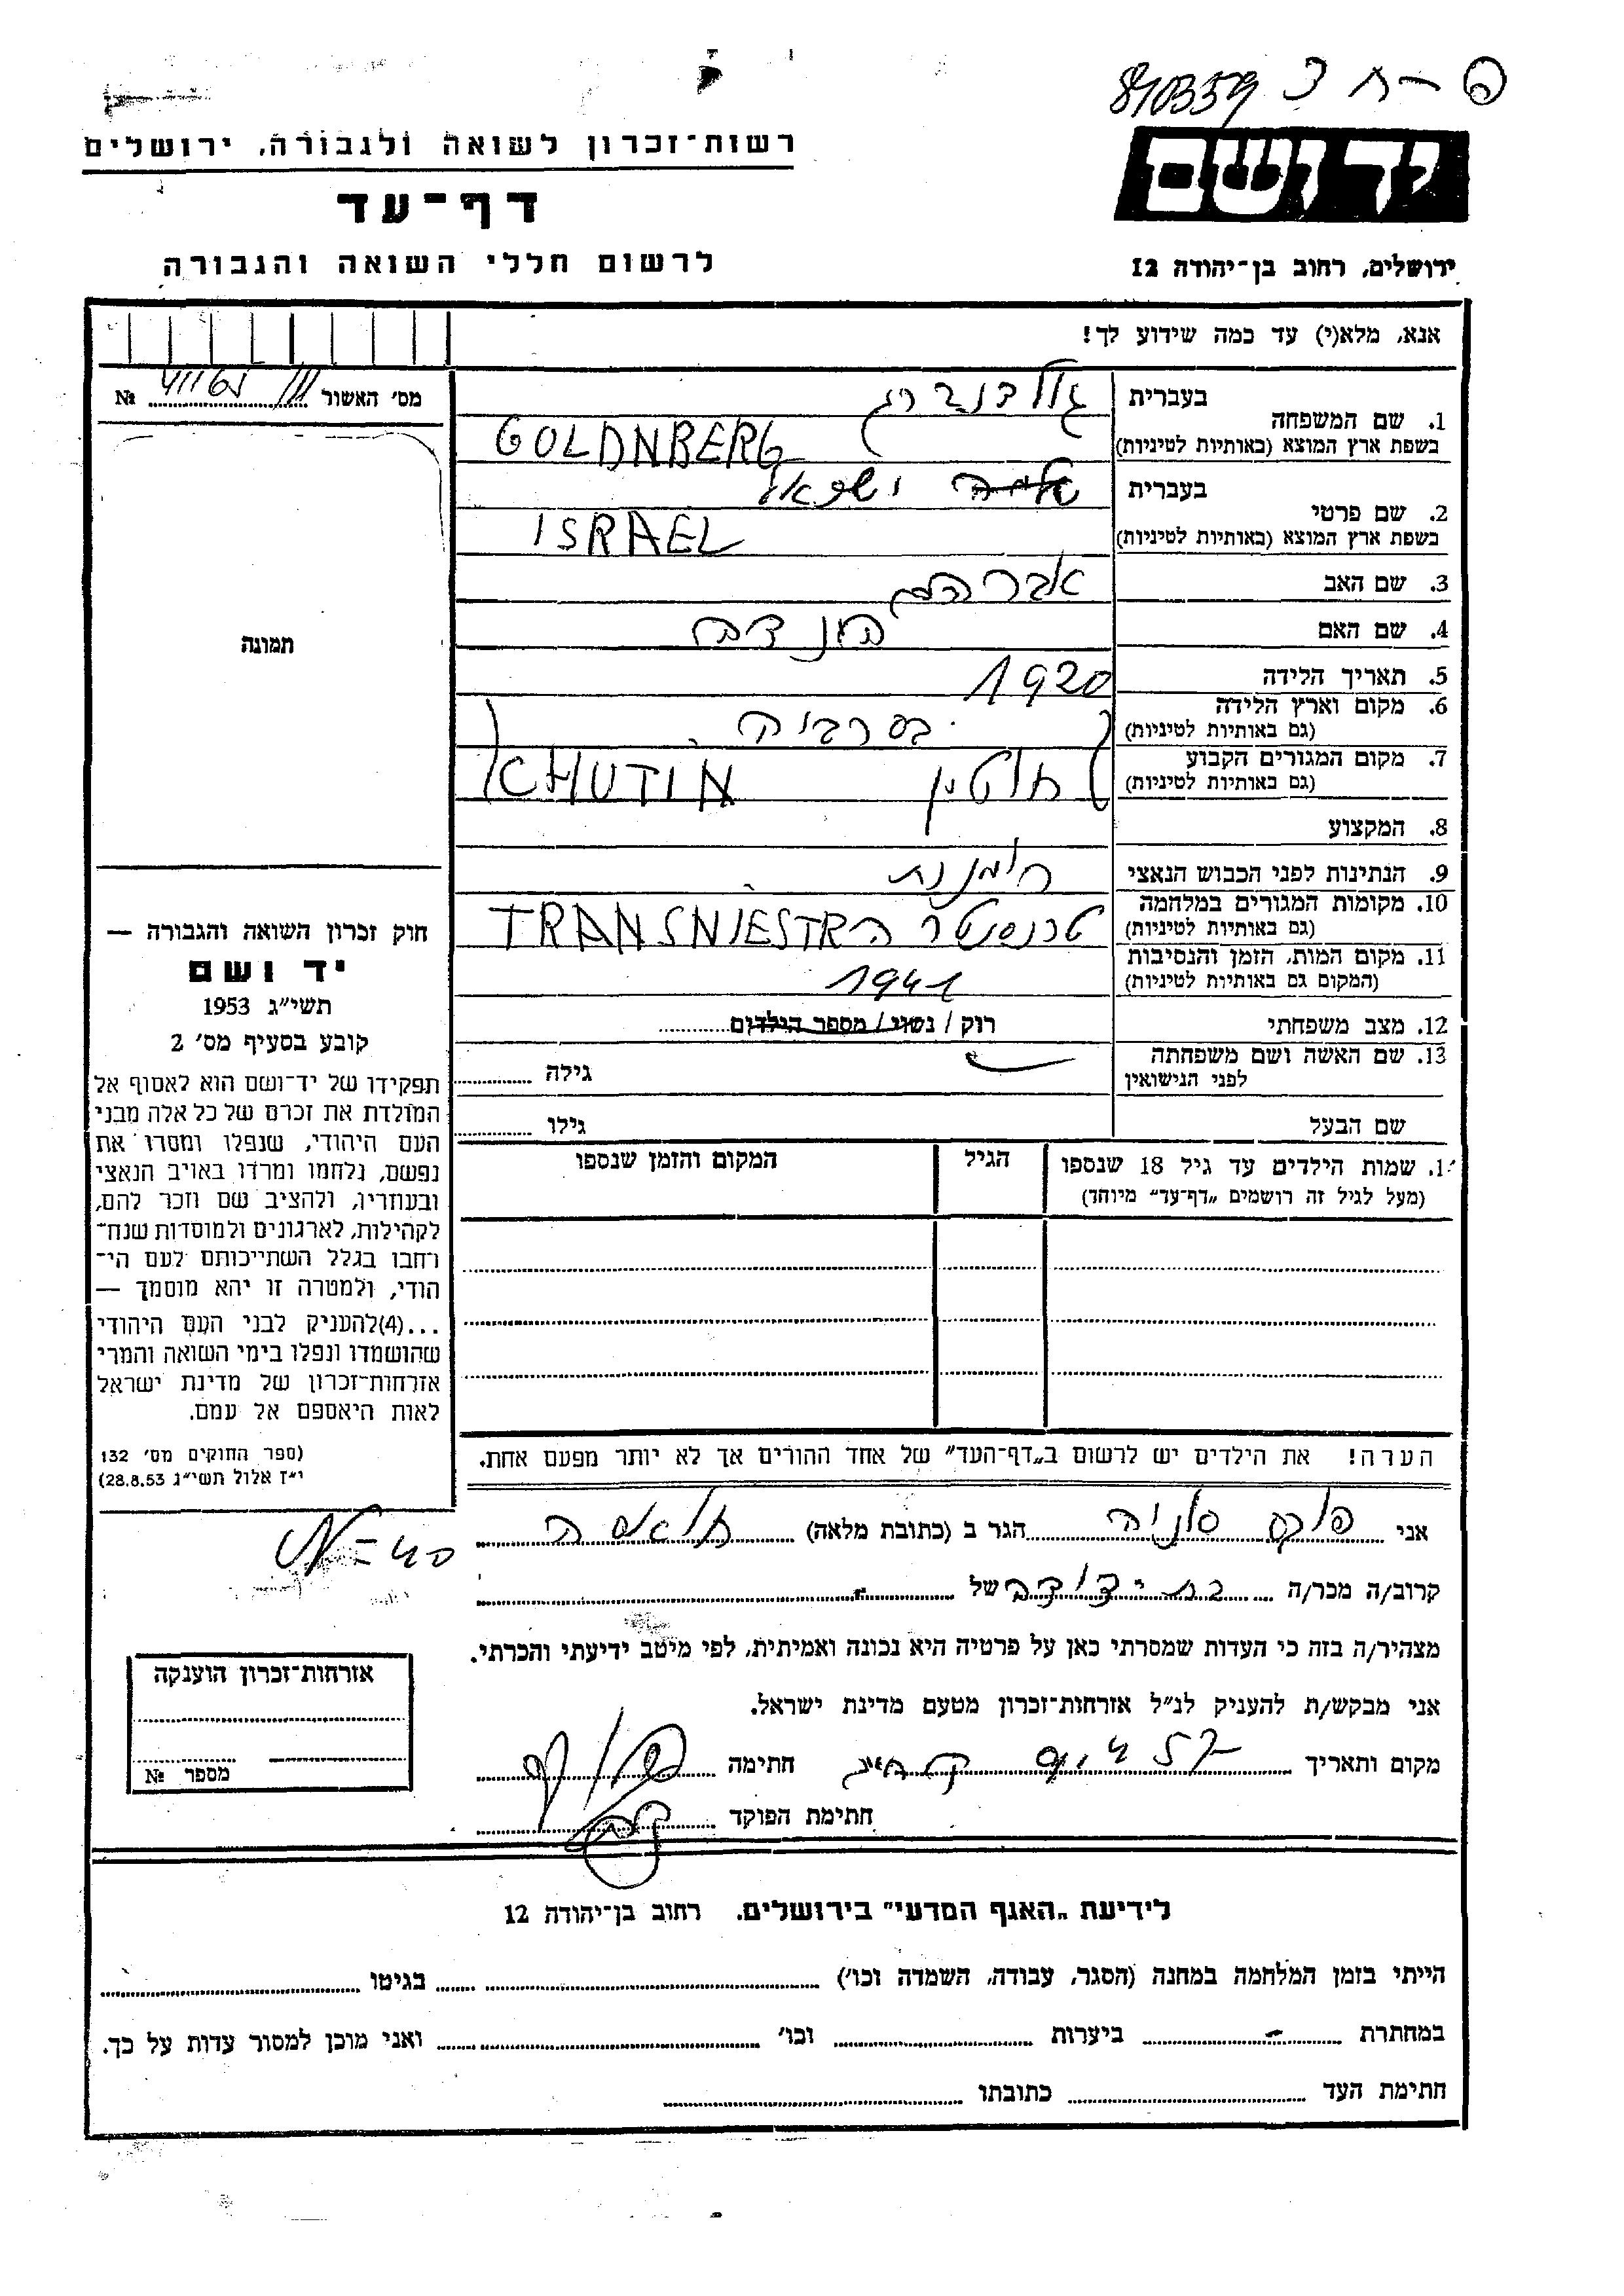 810359
יד ושם
ירושלים, רחוב בן־יהודה 12
רשות־זכרון לשואה ולגבורה, ירושלים
דף־עד
לרשום חללי השואה והגבורה
אנא, מלא(י) עד כמה שידוע לך!
מס׳ האשור № 
בעברית גולדנברג
1. שם המשפחה
בשפת ארץ המוצא (באותיות לטיניות) GOLDNBERG
בעברית ישראל
2. שם פרטי
בשפת ארץ המוצא (באותיות לטיניות) ISRAEL
3. שם האב אברהם
4. שם האם
5. תאריך הלידה 1920
6. מקום וארץ הלידה בסרביה
(גם באותיות לטיניות)
7. מקום המגורים הקבוע חוטין KHUTIN
(גם באותיות לטיניות)
8. המקצוע
9. הנתינות לפני הכבוש הנאצי רומנית
10. מקומות המגורים במלחמה טרנסניסטריה TRANSNIESTR
(גם באותיות לטיניות)
11. מקום המות, הזמן והנסיבות 1941
(המקום גם באותיות לטיניות)
12. מצב משפחתי רוק / נשוי / מספר הילדים
13. שם האשה ושם משפחתה גילה
לפני הנישואין
שם הבעל גילו
1. שמות הילדים עד גיל 18 שנספו הגיל המקום והזמן שנספו
(מעל לגיל זה רושמים „דף־עד״ מיוחד)
הערה! את הילדים יש לרשום ב„דף־העד״ של אחד ההורים אך לא יותר מפעם אחת.
תמונה
חוק זכרון השואה והגבורה —
יד ושם
תשי״ג 1953
קובע בסעיף מס׳ 2
תפקידו של יד־ושם הוא לאסוף אל
המולדת את זכרם של כל אלה מבני
העם היהודי, שנפלו ומסרו את
נפשם, נלחמו ומרדו באויב הנאצי
ובעוזריו, ולהציב שם וזכר להם,
לקהילות, לארגונים ולמוסדות שנח־
רחבו בגלל השתייכותם לעם הי־
הודי, ולמטרה זו יהא מוסמך —
...(4)להעניק לבני העם היהודי
שהושמדו ונפלו בימי השואה והמרי
אזרחות־זכרון של מדינת ישראל
לאות היאספם אל עמם.
(ספר החוקים מס׳ 132
י״ז אלול תשי״ג 28.8.53)
אני פוקס סוניה הגר ב (כתובת מלאה)
קרוב/ה מכר/ה בת דודה של
מצהיר/ה בזה כי העדות שמסרתי כאן על פרטיה היא נכונה ואמיתית, לפי מיטב ידיעתי והכרתי.
אני מבקש/ת להעניק לנ״ל אזרחות־זכרון מטעם מדינת ישראל.
מקום ותאריך חתימה
חתימת הפוקד
אזרחות־זכרון הוענקה
מספר №
לידיעת „האגף המדעי״ בירושלים, רחוב בן־יהודה 12
הייתי בזמן המלחמה במחנה (הסגר, עבודה, השמדה וכו׳) בגיטו
במחתרת ביערות וכו׳ ואני מוכן למסור עדות על כך.
חתימת העד כתובתו